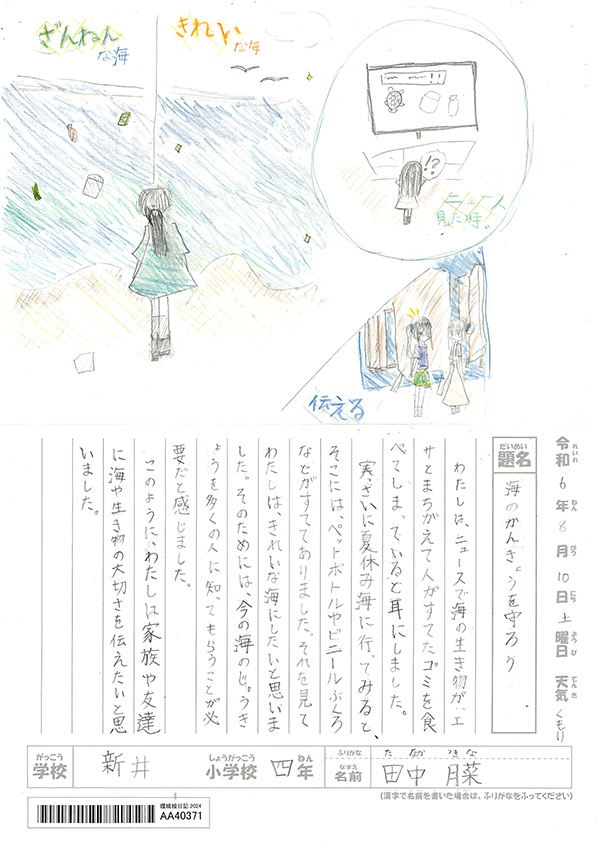 ざんねん
な海
きれい
な海
!?
ニュース
見た時。
伝える
令和6年8月10日土曜日 天気くもり
れいわ ねん がつ にち ようび てんき
だいめい
題名
海のかんきょうを守ろう
わたしは、ニュースで海の生き物が、エ
サとまちがえて人がすてたゴミを食
べてしまっていると耳にしました。
実っさいに夏休み海に行ってみると、
そこには、ペットボトルやビニールぶくろ
などがすててありました。それを見て
わたしは、きれいな海にしたいと思いま
した。そのためには、今の海のじょうき
ょうを多くの人に知ってもらうことが必
要だと感じました。
このように、わたしは家族や友達
に海や生き物の大切さを伝えたいと思
いました。
がっこう
学校
新井
しょうがっこう
小学校
四年
ねん
ふりがな
たなか きな
なまえ
名前
田中 月菜
(漢字で名前を書いた場合は、ふりがなをふってください)
環境絵日記2024
AA40371